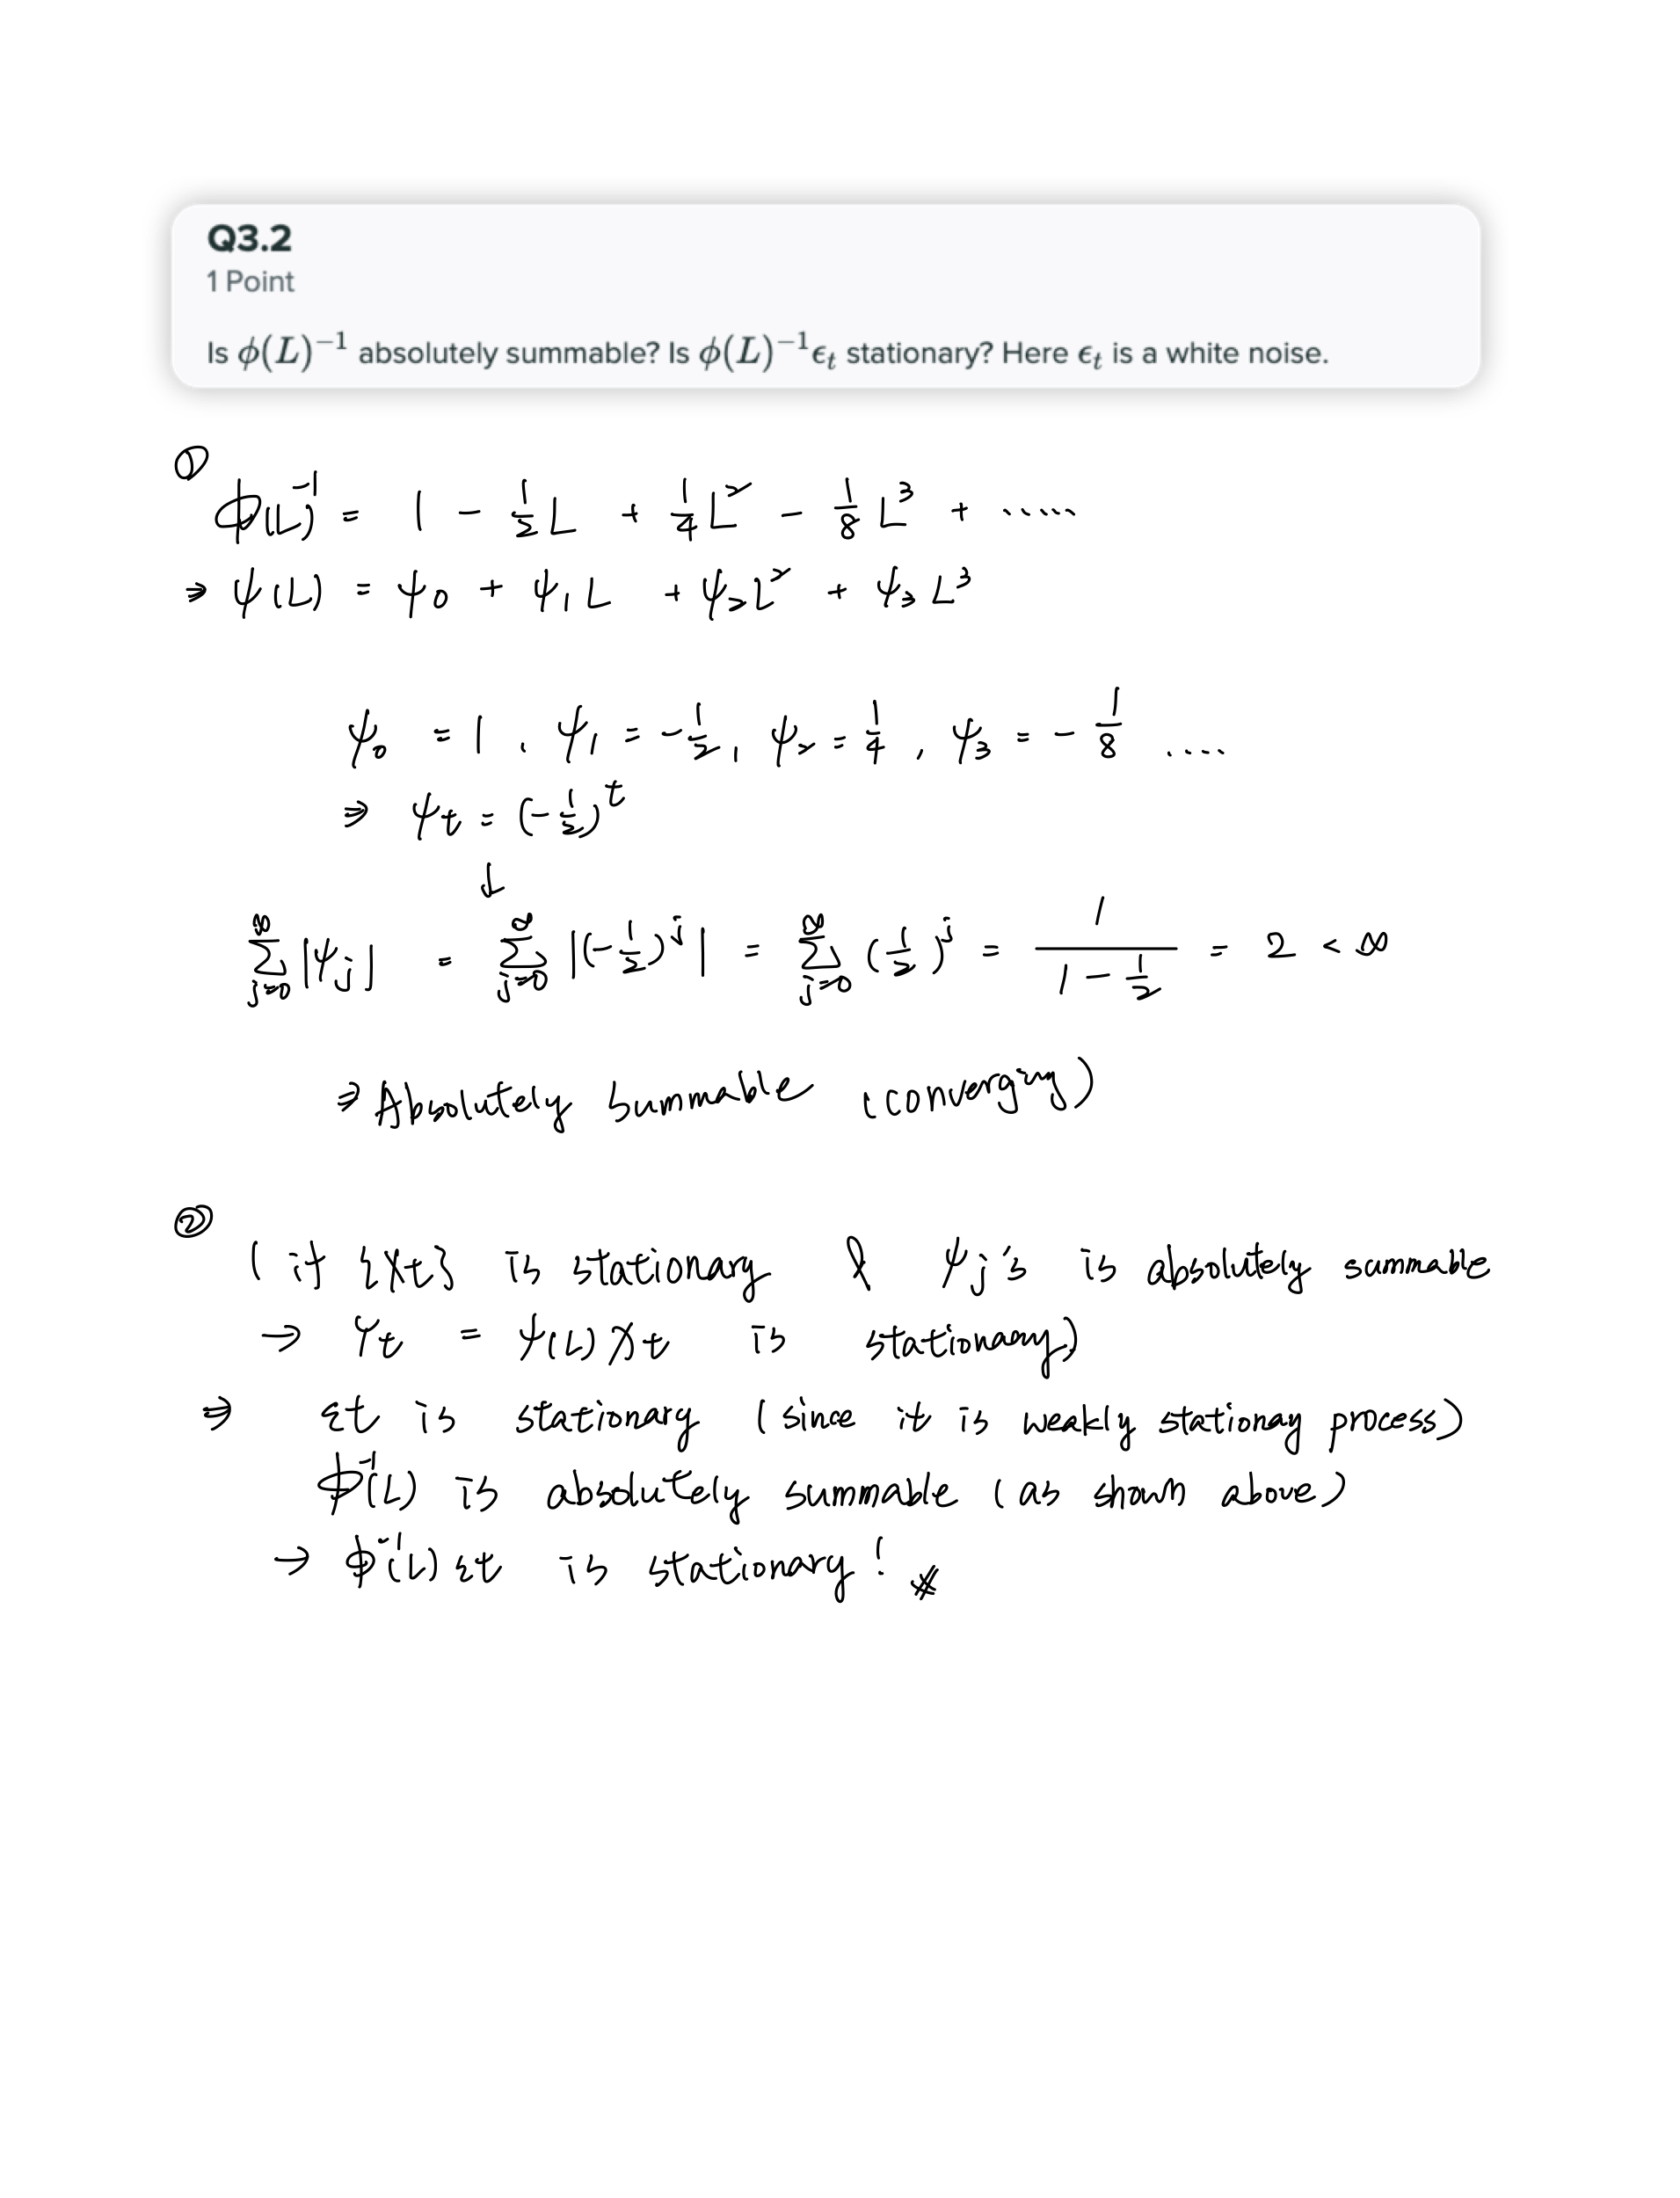 Q3.2
1 Point
Is ϕ(L)⁻¹ absolutely summable? Is ϕ(L)⁻¹ϵₜ stationary? Here ϵₜ is a white noise.
①
ϕ(L)⁻¹ = 1 - 1/2 L + 1/4 L² - 1/8 L³ + .....
⇒ ψ(L) = ψ₀ + ψ₁L + ψ₂L² + ψ₃L³
ψ₀ = 1, ψ₁ = -1/2, ψ₂ = 1/4, ψ₃ = -1/8 ....
⇒ ψt = (-1/2)^t
↓
∑_{j=0}^{∞} |ψj| = ∑_{j=0}^{∞} |(-1/2)^j| = ∑_{j=0}^{∞} (1/2)^j = 1/(1 - 1/2) = 2 < ∞
⇒ Absolutely summable (converging)
②
( if {Xt} is stationary & ψj's is absolutely summable
→ Yt = ψ(L)Xt is stationary)
⇒ εt is stationary (since it is weakly stationay process)
ϕ⁻¹(L) is absolutely summable (as shown above)
→ ϕ⁻¹(L)εt is stationary!